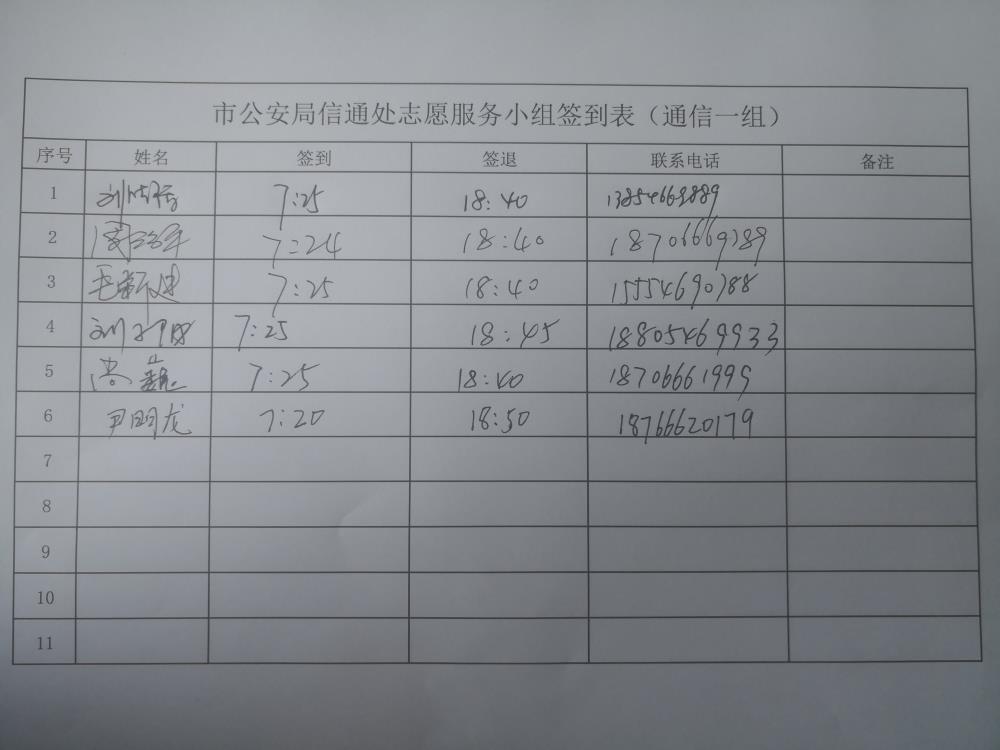 市公安局信通处志愿服务小组签到表（通信一组）
序号 姓名 签到 签退 联系电话 备注
1 7:25 18:40
2 7:24 18:40 18706669789
3 7:25 18:40 15554690788
4 7:25 18:45 18805469933
5 7:25 18:40 18706661999
6 尹明龙 7:20 18:50 18766620179
7
8
9
10
11